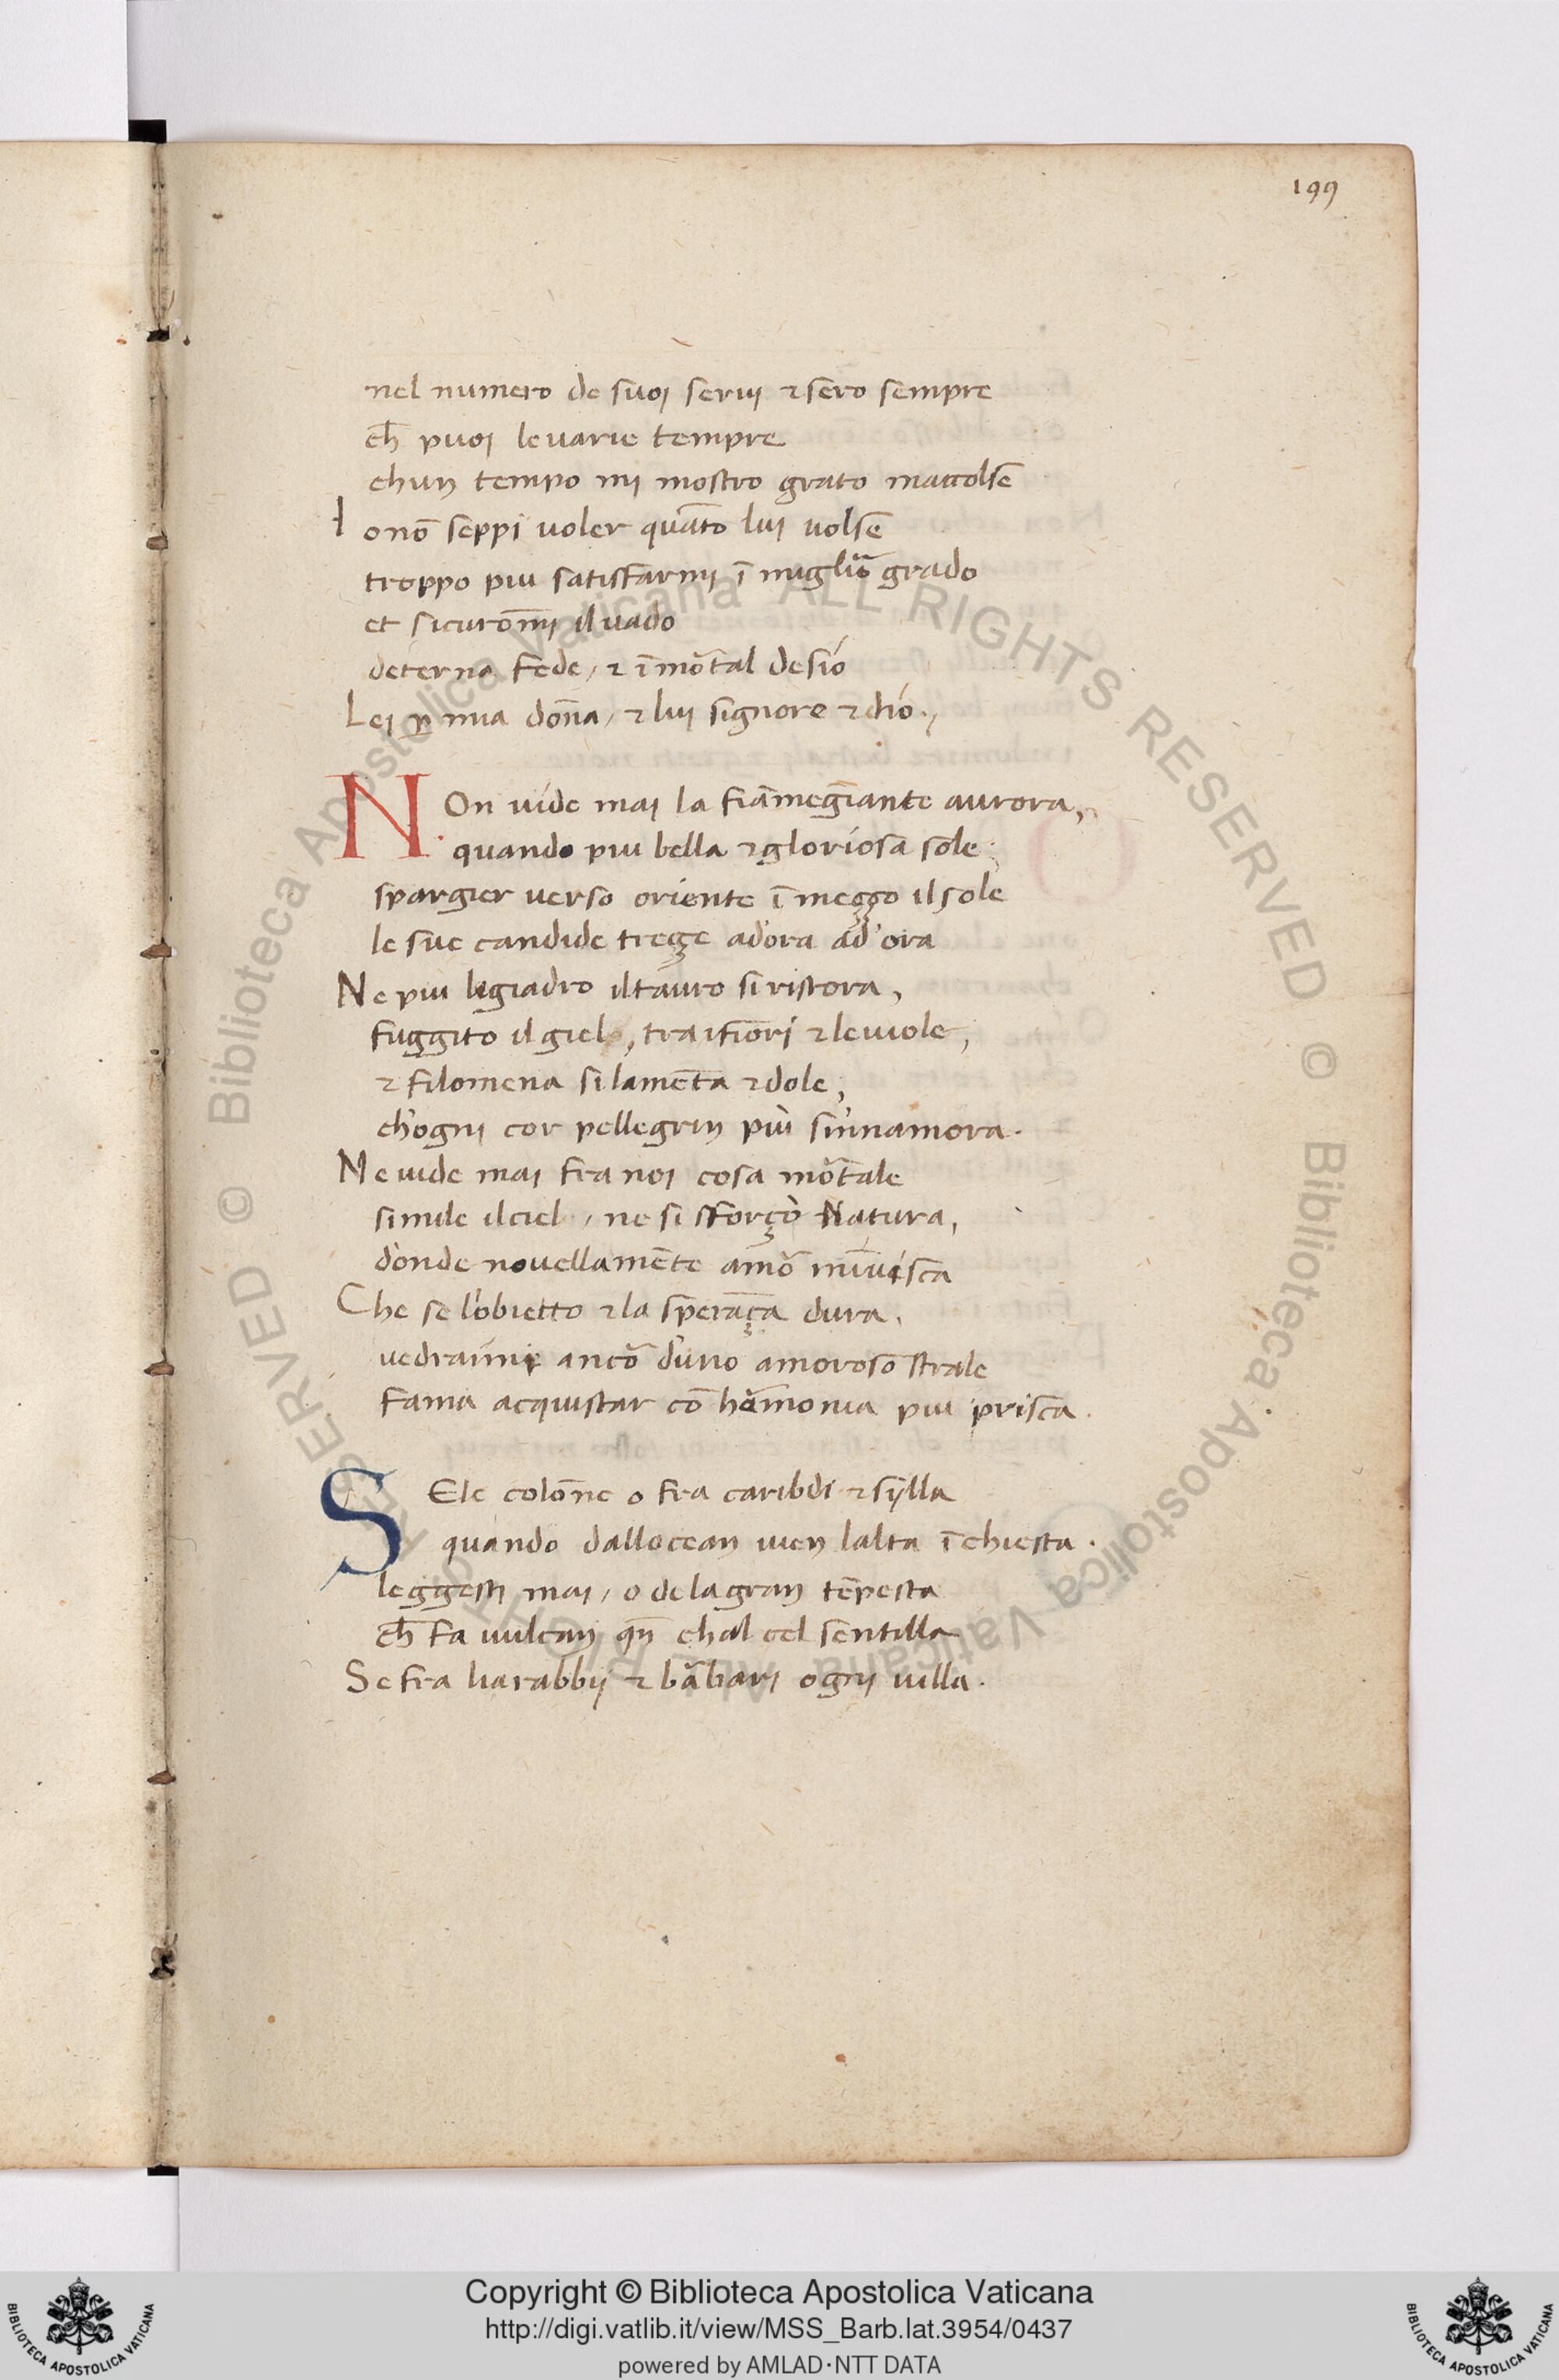 199
nel numero de suoi serui ⁊ sero sempre
ch̄ puoi leuarie tempre
chun tempo mi mostro grato maccolse
Io nō seppi uoler quāto lui uolse
troppo piu satisfarmi ī miglio᷑ grado
et sicurōmi il uado
deterna fede / ⁊ īmo᷑tal desio
Lei ꝑ mia dōna / ⁊ lui signore ⁊ dio.
NOn uide mai la fiāmegiante aurora,
quando piu bella ⁊ gloriosa sole
spargier uerso oriente ī meggo il sole
le sue candide trecçe ad'ora ad'ora
Ne piu legiadro il tauro si ristora,
fuggito il gielo, tra i fiori ⁊ le uiole,
⁊ filomena si lamenta ⁊ dole,
ch'ogni cor pellegrin più s'innamora.
Ne uide mai fra noi cosa mo᷑tale
simile il ciel / ne si sforçò Natura,
donde nouellamēte amo᷑ m'inuisca
Che se l'obietto ⁊ la sperāça dura.
uedraimi anco᷑ d'uno amoroso strale
fama acquistar cō ha᷑monia piu prisca.
SEle colōne o fra caribdi ⁊ sylla
quando dallocean uien lalta īchiesta.
leggesti mai / o de la gran tēpesta
ch̄ fa uulcan qn̄ chal ciel sentilla
Se fra liarabbij ⁊ ba᷑bari ogni uilla.
Biblioteca Apostolica Vaticana ALL RIGHTS RESERVED ©
Biblioteca Apostolica Vaticana ALL RIGHTS RESERVED ©
Copyright © Biblioteca Apostolica Vaticana
http://digi.vatlib.it/view/MSS_Barb.lat.3954/0437
powered by AMLAD·NTT DATA
BIBLIOTECA APOSTOLICA VATICANA
BIBLIOTECA APOSTOLICA VATICANA